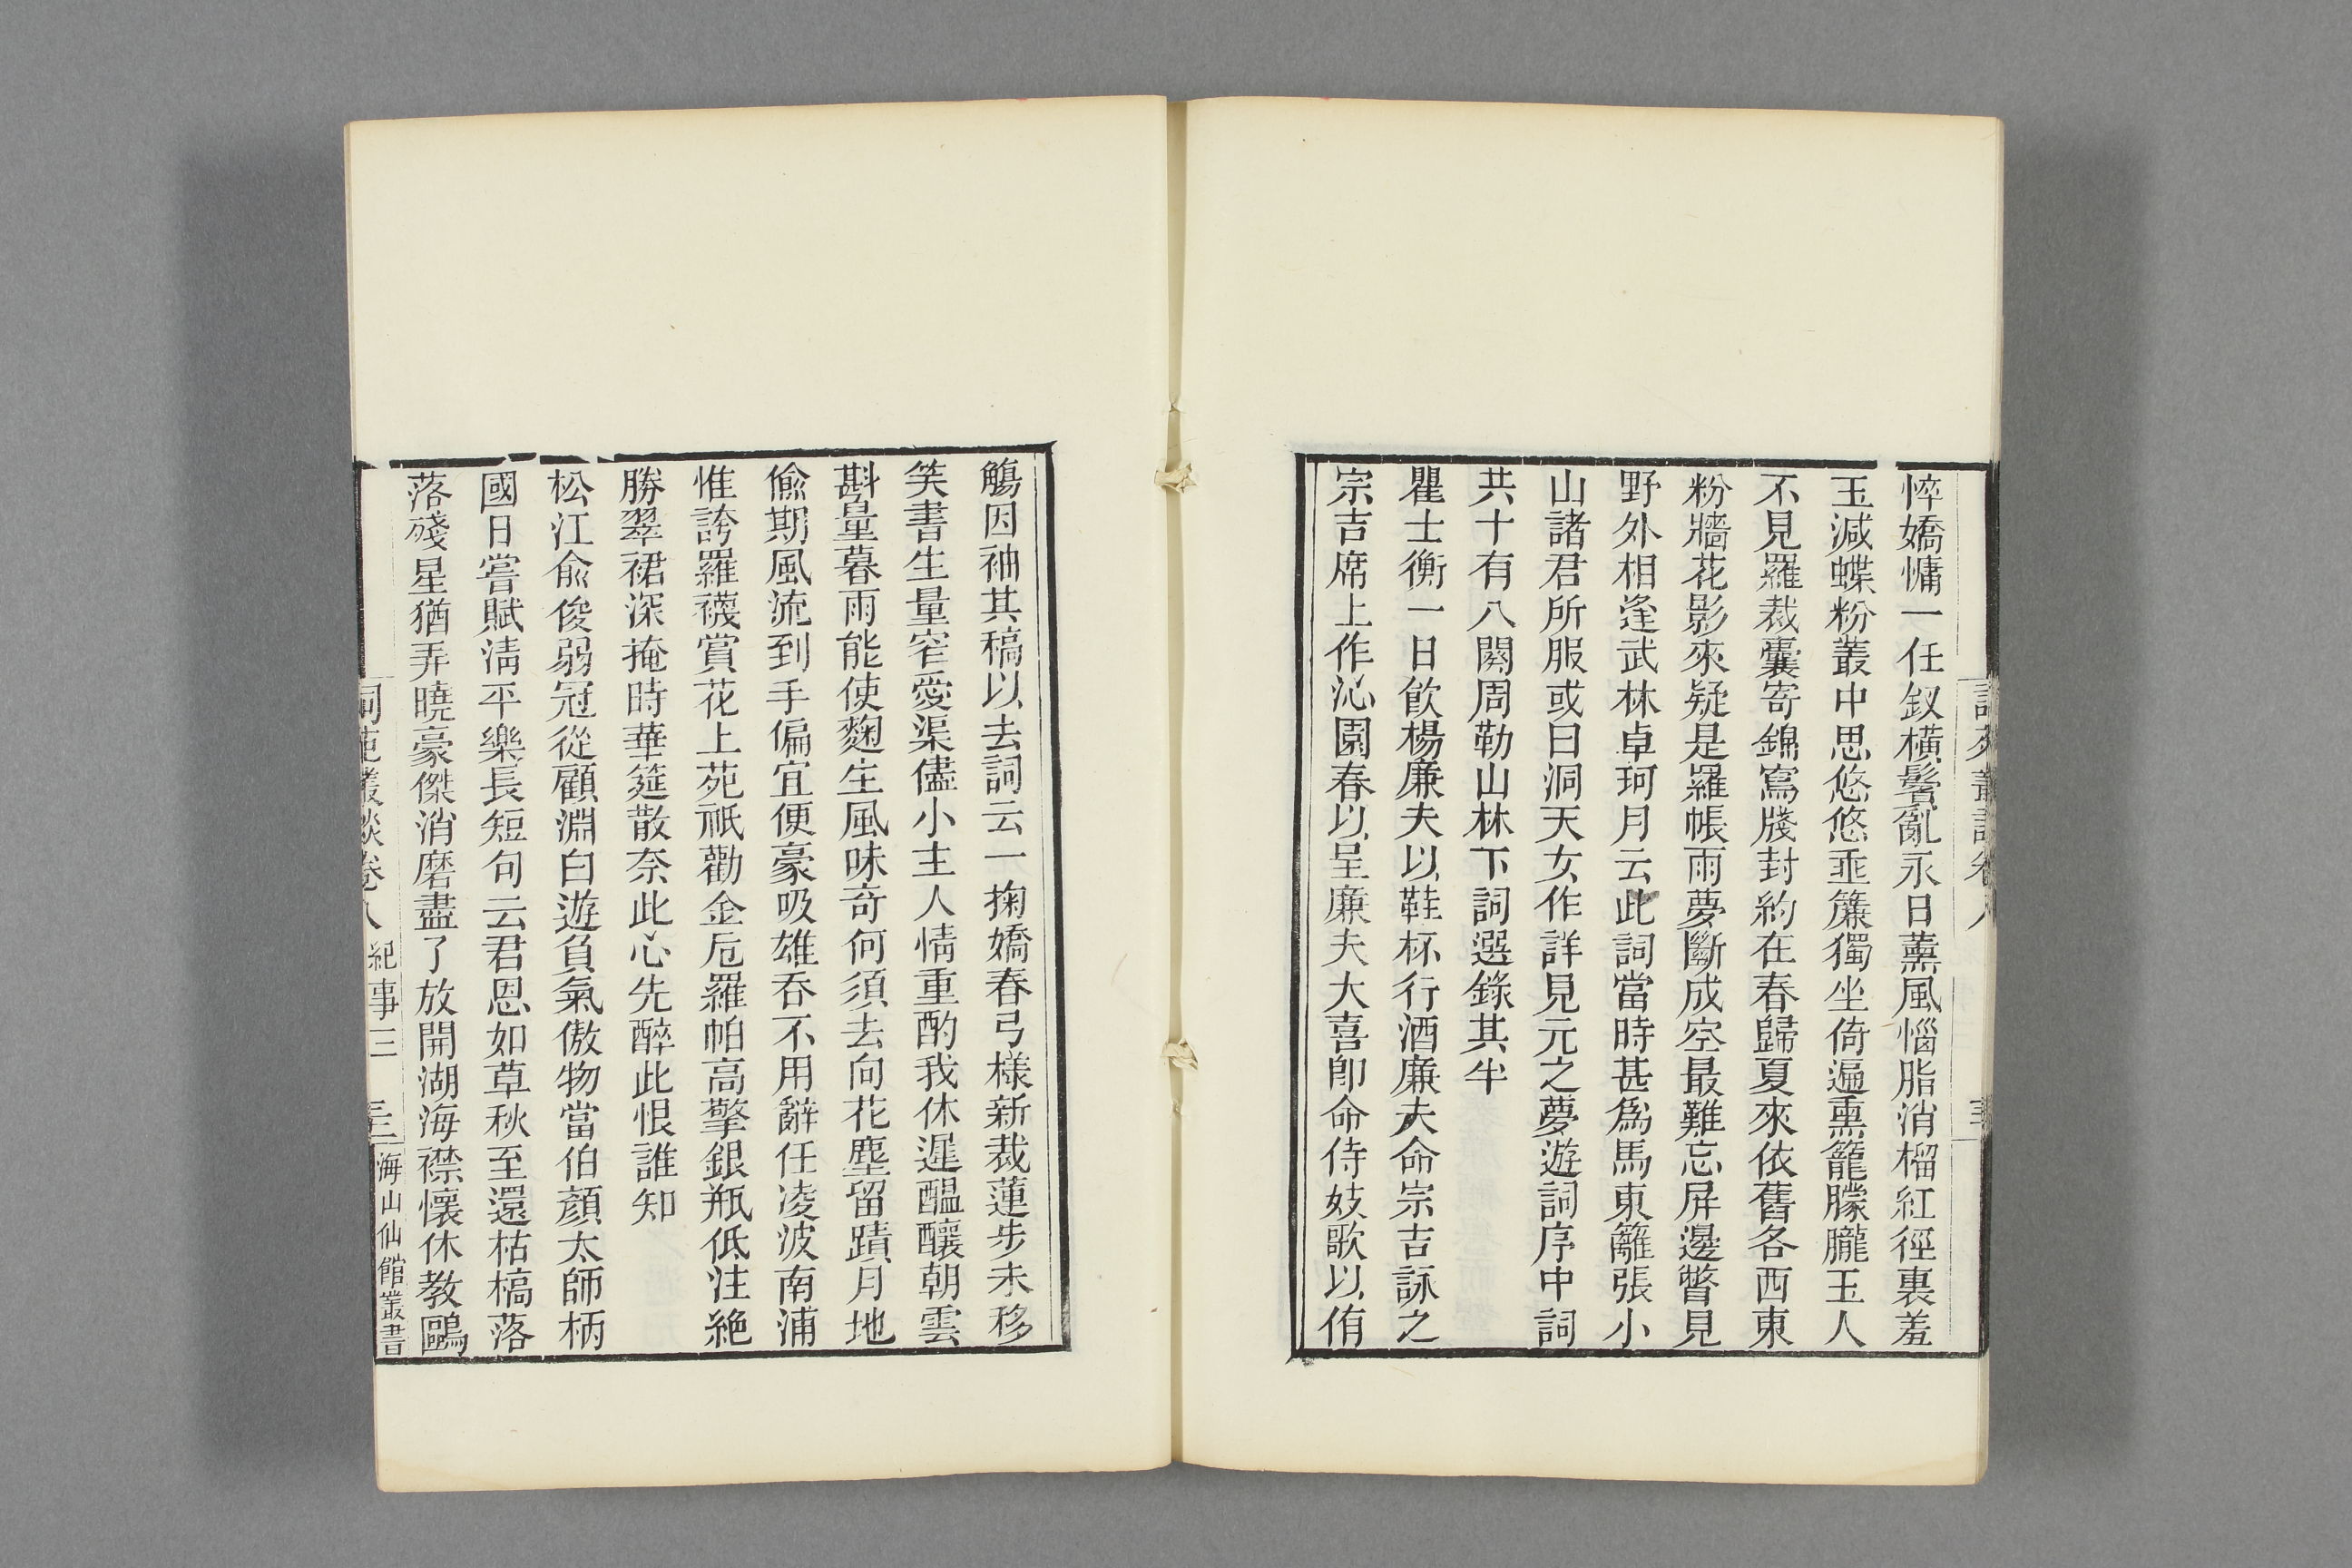 悴嬌慵一任釵橫鬢亂永日薰風惱脂消榴紅徑裏羞
玉減蝶粉叢中思悠悠垂簾獨坐倚遍熏籠朦朧玉人
不見羅裁囊寄錦寫牋封約在春歸夏來依舊各西東
粉牆花影來疑是羅帳雨夢斷成空最難忘屏邊瞥見
野外相逢武林卓珂月云此詞當時甚爲馬東籬張小
山諸君所服或曰洞天女作詳見元之夢遊詞序中詞
共十有八闋周勒山林下詞選錄其半
瞿士衡一日飮楊廉夫以鞋杯行酒廉夫命宗吉詠之
宗吉席上作沁園春以呈廉夫大喜卽命侍妓歌以侑
觴因袖其稿以去詞云一掬嬌春弓樣新裁蓮步未移
笑書生量窄愛渠儘小主人情重酌我休遲醞釀朝雲
斟量暮雨能使麴生風味奇何須去向花塵留蹟月地
偸期風流到手偏宜便豪吸雄吞不用辭任凌波南浦
惟誇羅襪賞花上苑祇勸金卮羅帕高擎銀瓶低注絶
勝翠裙深掩時華筵散奈此心先醉此恨誰知
松江俞俊弱冠從顧淵白遊負氣傲物當伯顏太師柄
國日嘗賦淸平樂長短句云君恩如草秋至還枯槁落
落殘星猶弄曉豪傑消磨盡了放開湖海襟懷休教鷗
詞苑叢談卷八 紀事三 海山仙館叢書